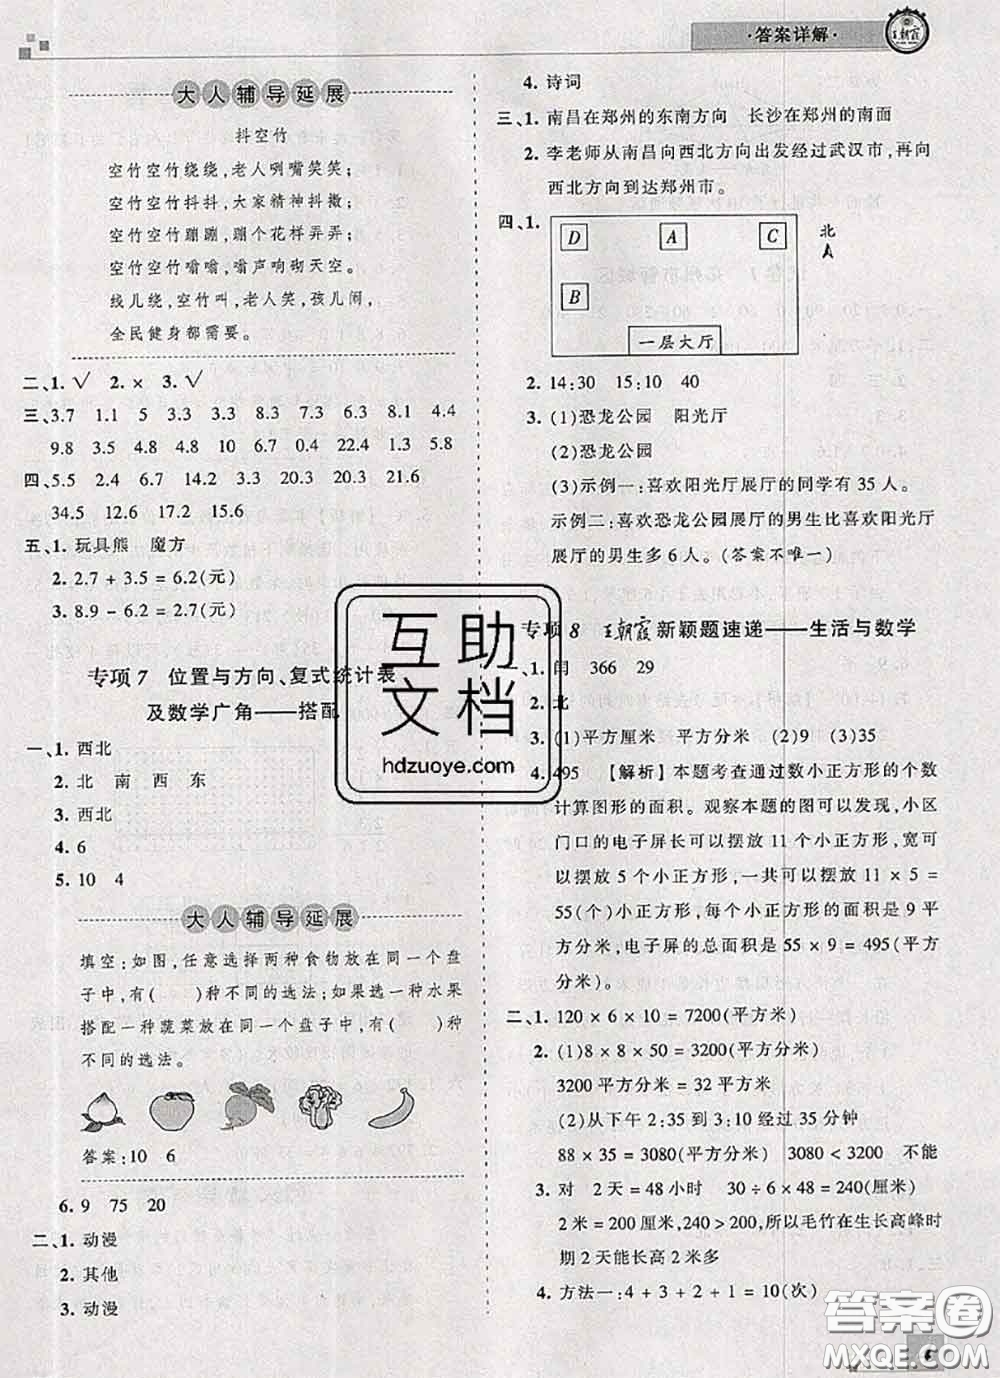 ·答案详解·
王朝霞
大人辅导延展
抖空竹
空竹空竹绕绕,老人咧嘴笑笑;
空竹空竹抖抖,大家精神抖擞;
空竹空竹蹦蹦,女孩花样弄弄;
空竹空竹嗡嗡,嗡声响彻天空。
线儿绕,空竹叫,老人笑,孩儿闹,
全民健身都需要。
二、1. √ 2. × 3. √
三、3.7 1.1 5 3.3 3.3 8.3 7.3 6.3 8.1 4.4
9.8 3.5 4.8 4.8 10 6.7 0.4 22.4 1.3 5.8
四、5.5 2.4 6.7 14.2 3.3 20.4 20.2 21.6
34.5 12.6 17.2 15.6
五、1. 玩具熊 魔方
2. 2.7 + 3.5 = 6.2(元)
3. 8.9 - 6.2 = 2.7(元)
专项 7 位置与方向、复式统计表
及数学广角——搭配
一、1. 西北
2. 北 南 西 东
3. 西北
4. 6
5. 10 4
大人辅导延展
填空:如图,任意选择两种食物放在同一个盘
子中,有( )种不同的选法;如果选一种水果
搭配一种蔬菜放在同一个盘子中,有( )种
不同的选法。
答案:10 6
6. 9 75 20
二、1. 动漫
2. 其他
3. 动漫
4. 诗词
三、1. 南昌在郑州的东南方向 长沙在郑州的南面
2. 李老师从南昌向西北方向出发经过武汉市,再向
西北方向到达郑州市。
四、1.
D A C 北
B
一层大厅
2. 14:30 15:10 40
3. (1)恐龙公园 阳光厅
(2)恐龙公园
(3)示例一:喜欢阳光厅展厅的同学有 35 人。
示例二:喜欢恐龙公园展厅的男生比喜欢阳光厅
展厅的男生多 6 人。(答案不唯一)
专项 8 王朝霞新颖题速递——生活与数学
一、1. 闰 366 29
2. 北
3. (1)平方厘米 平方分米 (2)9 (3)35
4. 495 【解析】本题考查通过数小正方形的个数
计算图形的面积。观察本题的图可以发现,小区
门口的电子屏长可以摆放 11 个小正方形,宽可
以摆放 5 个小正方形,一共可以摆放 11 × 5 =
55(个)小正方形,每个小正方形的面积是 9 平
方分米,电子屏的总面积是 55 × 9 = 495(平方
分米)。
二、1. 120 × 6 × 10 = 7200(平方分米)
2. (1)8 × 8 × 50 = 3200(平方分米)
3200 平方分米 = 32 平方米
(2)从下午 2:35 到 3:10 经过 35 分钟
88 × 35 = 3080(平方分米) 3080 < 3200 不能
3. 对 2 天 = 48 小时 30 ÷ 6 × 48 = 240(厘米)
2 米 = 200 厘米,240 > 200,所以毛竹在生长高峰时
期 2 天能长高 2 米多
4. 方法一:4 + 3 + 2 + 1 = 10(次)
互助
文档
hdzuoye.com
答案圈
MXQE.COM